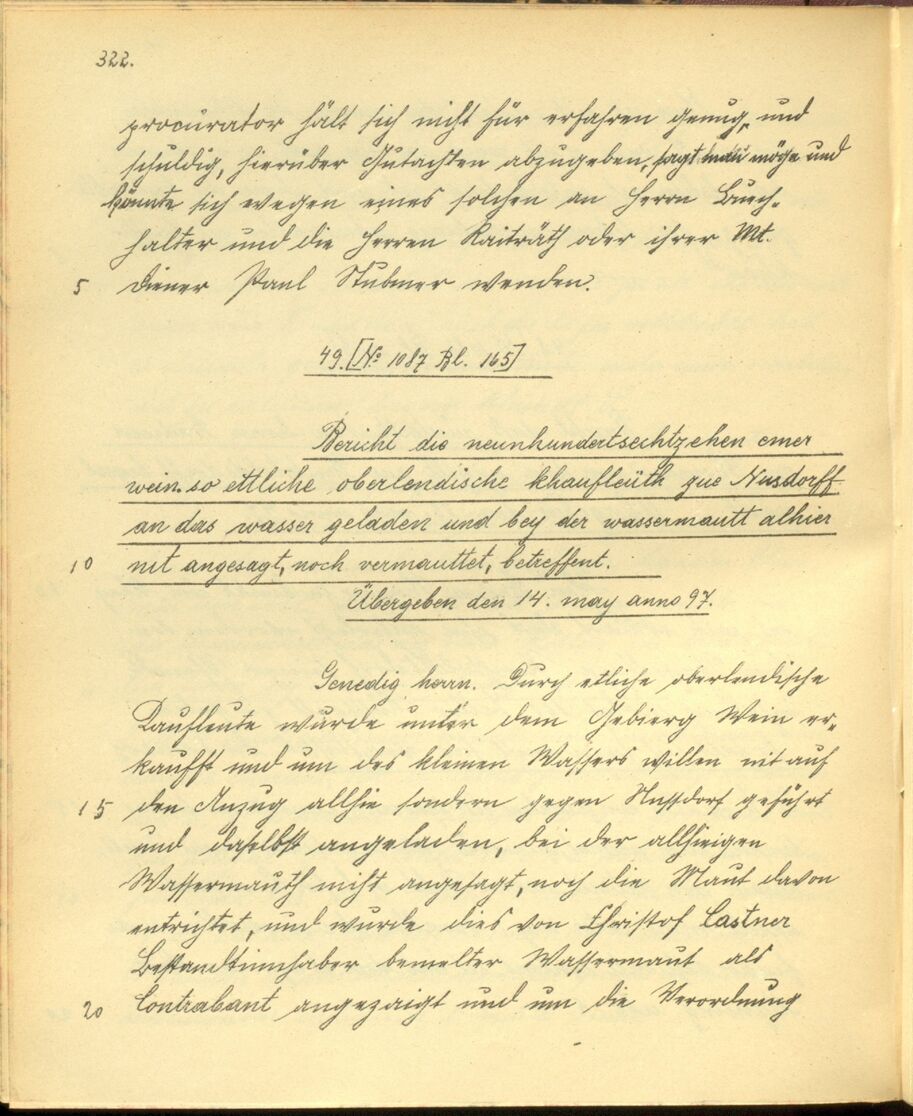 322.
procurator hält sich nicht für erfahren genug, und
schuldig, hierüber Gutachten abzugeben, sagt möge und
könnte sich wegen eines solchen an Herrn Buech-
halter und die Herren Raiträth oder ihrer Mt.
5 Diener Paul Stubmer wenden.
49. [No 1087 Bl. 165]
Bericht die neunhundertsechtzehen emer
wein so ettliche oberlendische khaufleüth zue Nusdorff
an das wasser geladen und bey der wassermautt alhier
10 nit angesagt, noch vermauttet, betreffent.
Übergeben den 14. may anno 97.
Genedig herrn. Durch etliche oberlendische
Kaufleute wurde unter dem Gebierg Wein er-
kaufft und um des kleinen Wassers willen nit auf
15 den Anzug allhie sondern gegen Nussdorf geführt
und daselbst angeladen, bei der allhieigen
Wassermauth nicht angesagt, noch die Maut davon
entrichtet, und wurde dies von Christof Castner
Bestandtinnhaber bemelter Wassermaut als
20 Contrabant angezaigt und um die Verordnung